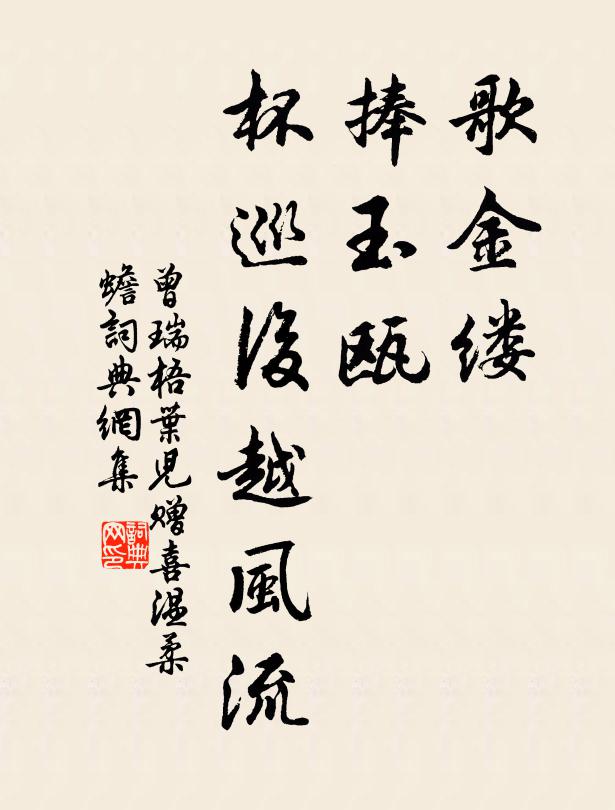 歌金缕
捧玉瓯
杯巡後越風流
曾瑞梧葉兒赠喜温柔
蟾詞典網集
詞典网印